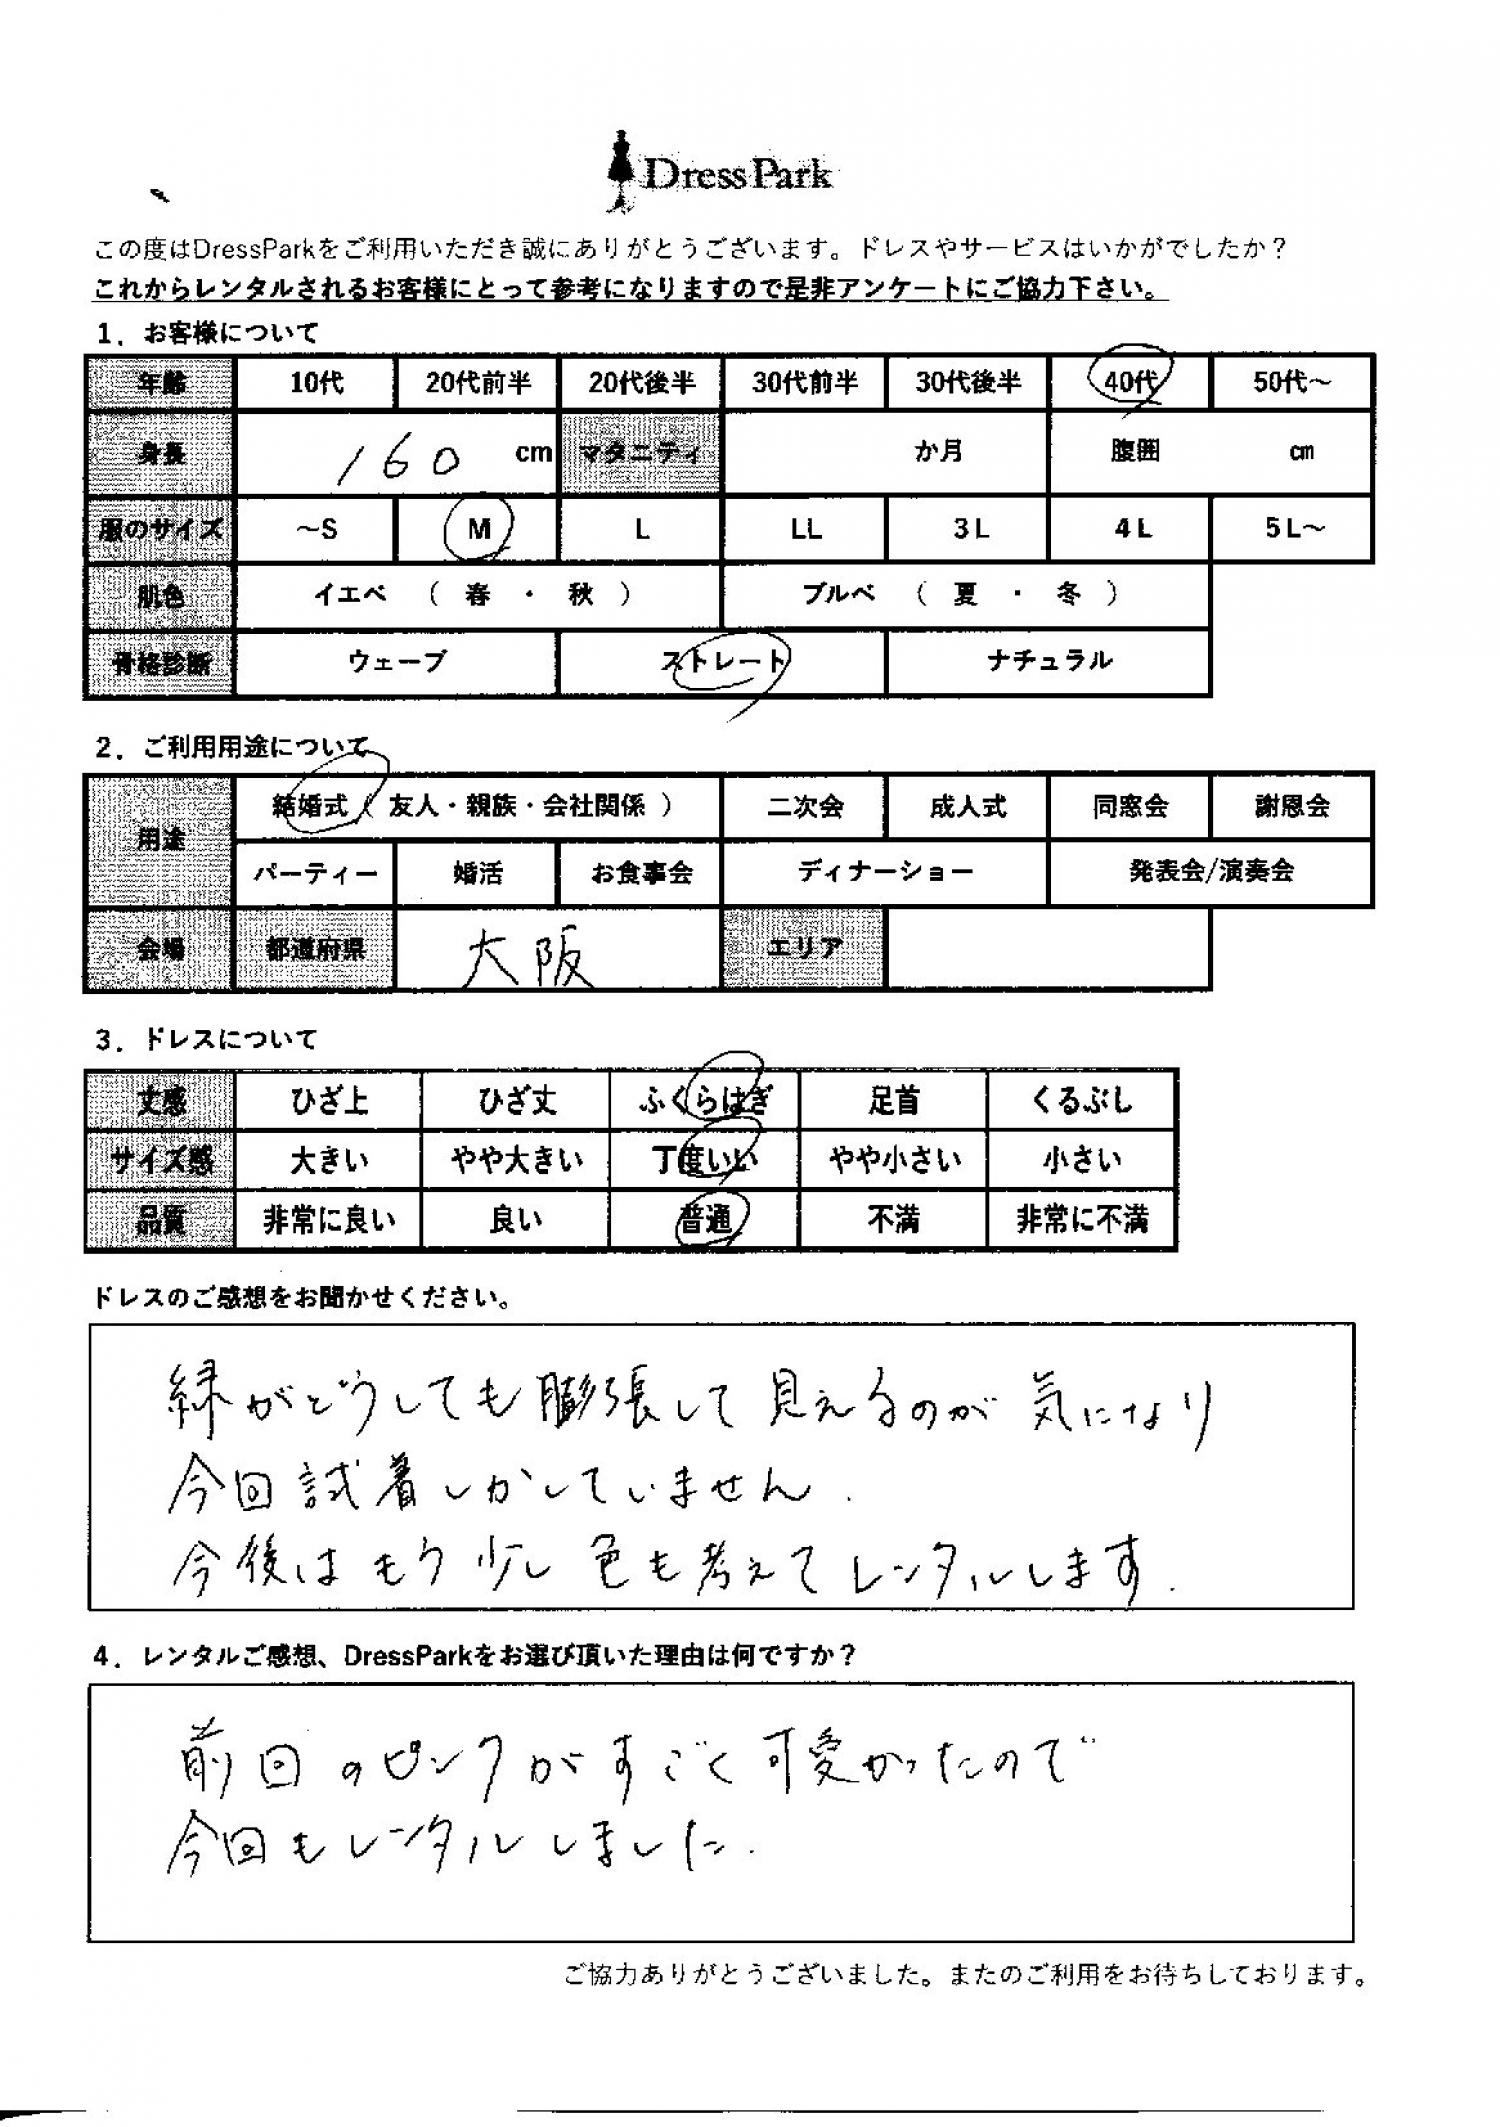 DressPark
この度はDressParkをご利用いただき誠にありがとうございます。ドレスやサービスはいかがでしたか？
これからレンタルされるお客様にとって参考になりますので是非アンケートにご協力下さい。
1．お客様について
年齢 10代 20代前半 20代後半 30代前半 30代後半 40代 50代～
身長 160 cm マタニティ か月 腹囲 cm
服のサイズ ～S M L LL 3L 4L 5L～
肌色 イエベ （ 春 ・ 秋 ） ブルベ （ 夏 ・ 冬 ）
骨格診断 ウェーブ ストレート ナチュラル
2．ご利用用途について
用途 結婚式（ 友人・親族・会社関係 ） 二次会 成人式 同窓会 謝恩会
パーティー 婚活 お食事会 ディナーショー 発表会/演奏会
会場 都道府県 大阪 エリア
3．ドレスについて
丈感 ひざ上 ひざ丈 ふくらはぎ 足首 くるぶし
サイズ感 大きい やや大きい 丁度いい やや小さい 小さい
品質 非常に良い 良い 普通 不満 非常に不満
ドレスのご感想をお聞かせください。
緑がどうしても膨張して見えるのが気になり
今回試着しかしていません.
今後はもう少し色も考えてレンタルします.
4．レンタルご感想、DressParkをお選び頂いた理由は何ですか？
前回のピンクがすごく可愛かったので
今回もレンタルしました.
ご協力ありがとうございました。またのご利用をお待ちしております。